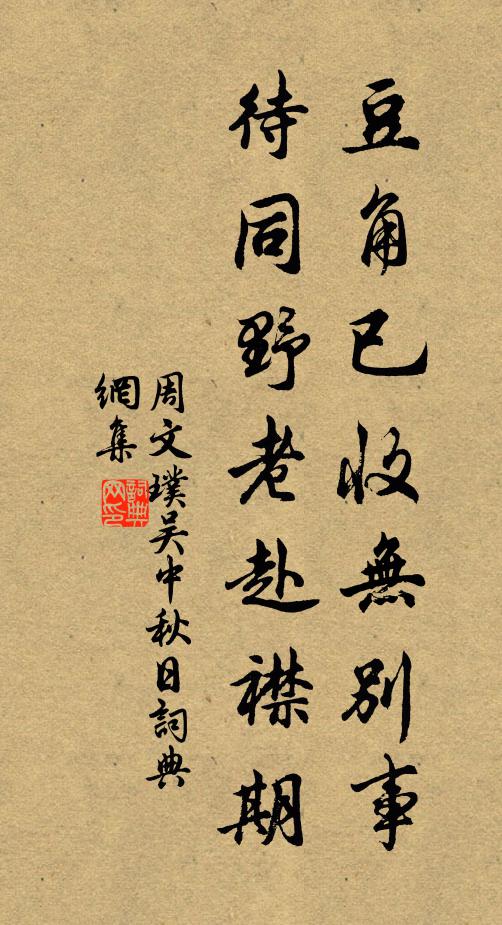 豆角已收無別事
待同野老赴襟期
周文璞吴中秋日詞典
網集
詞典網印